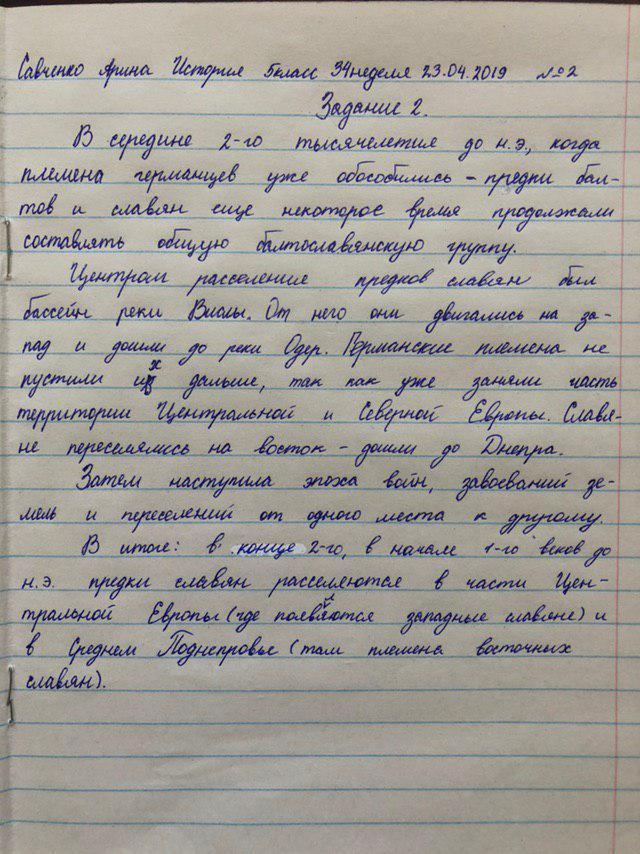 Савченко Арина История 5класс 34неделя 23.04.2019 №2
Задание 2.
В середине 2-го тысячелетия до н.э., когда
племена германцев уже обособились - предки бал-
тов и славян еще некоторое время продолжали
составлять общую балтославянскую группу.
Центром расселения предков славян был
бассейн реки Вислы. От него они двигались на за-
пад и дошли до реки Одер. Германские племена не
пустили их дальше, так как уже заняли часть
территории Центральной и Северной Европы. Славя-
не переселялись на восток - дошли до Днепра.
Затем наступила эпоха войн, завоеваний зе-
мель и переселений от одного места к другому.
В итоге: в конце 2-го, в начале 1-го веков до
н.э. предки славян расселяются в части Цен-
тральной Европы (где появляются западные славяне) и
в Среднем Поднепровье (там племена восточных
славян).